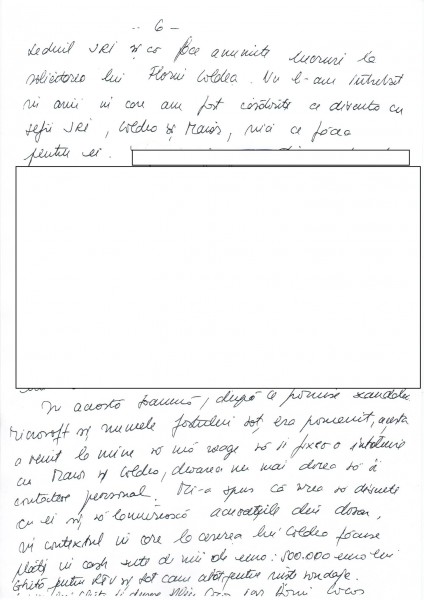 - 6 -
sediul SRI și că face anumite lucruri la
solicitarea lui Florin Coldea. Nu l-am întrebat
în anii în care am fost căsătorită ce discuta cu
șefii SRI, Coldea și Maior, nici ce făcea
pentru ei.
În această toamnă, după ce pornise scandalul
Microsoft și numele fostului soț era pomenit, acesta
a venit la mine să mă roage să îi fixez o întâlnire
cu Maior și Coldea, deoarece nu mai dorea să îi
contacteze personal. Mi-a spus că vrea să discute
cu ei și să lămurească acuzațiile din dosar,
în contextul în care la cererea lui Coldea făcuse
plăți în cash sute de mii de euro: 500.000 euro lui
Ghiță pentru RTV și tot cam atât pentru niște sondaje.